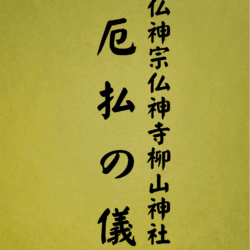 仏神宗仏神寺柳山神社
厄払の儀